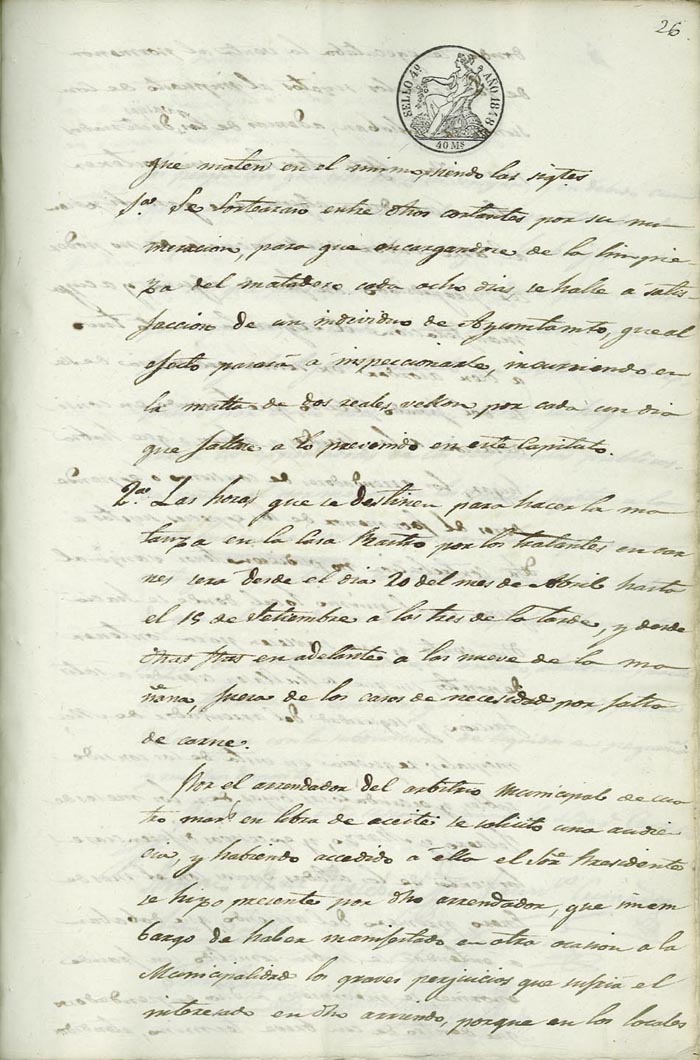 26
SELLO 4º AÑO 1848
40 Mˢ
que maten en el mismo, siendo las sigtes
1ª. Se sortearan entre dhos cortantes por su nu
meracion, para que encargandose de la limpie
za del matadero cada ocho dias se halle á satis
faccion de un individuo de Ayuntamto, que al
efecto pasará á inspeccionarle, incurriendo en
la multa de dos reales vellon por cada un dia
que faltare a lo prevenido en este Capitulo.
2ª. Las horas que se destinen para hacer la ma
tanza en la Casa Rastro por los tratantes en car
nes sera desde el dia 20 del mes de Abril hasta
el 15 de Setiembre a las tres de la tarde, y desde
en adelante a las nueve de la ma
ñana, fuera de los casos de necesidad por falta
de carne.
Por el arrendador del arbitrio Municipal de cua
tro mars en libra de aceite se solicitó una audie
cia, y habiendo accedido á ella el Sor. Presidente
se hizo presente por dho arrendador, que sinem
bargo de haber manifestado en otra ocasion a la
Municipalidad los graves perjuicios que sufria el
interesado en dho arriendo, porque en los locales